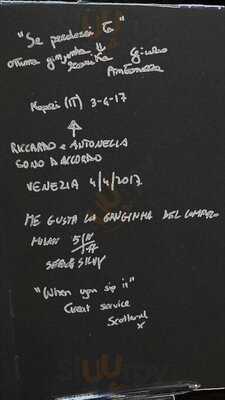 "Se perdessi
ottima ginjinha!! Giulio
Antonella
Napoli (IT) 3-4-17
RICCARDO e ANTONELLA
SONO D'ACCORDO
VENEZIA 4/4/2017
ME GUSTA LA GINGINHA DEL
MILAN
"When you sip it"
Great service
Scotland
x